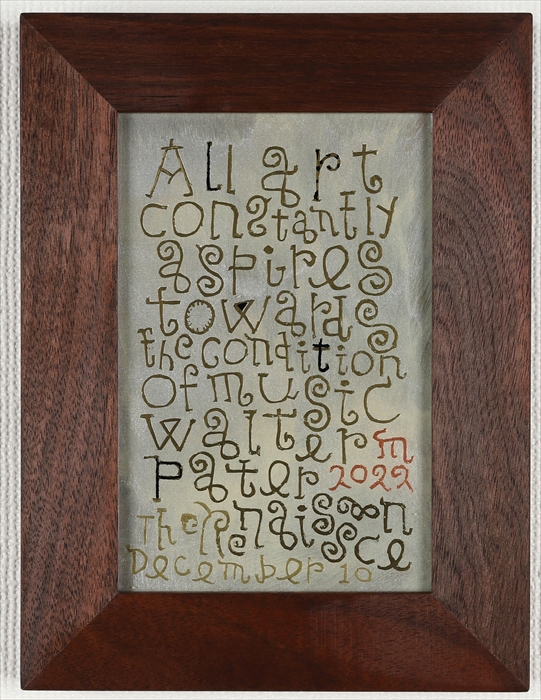 All art
constantly
aspires
towards
the condition
of music
walter
Pater 2022
The Renaissance
December 10